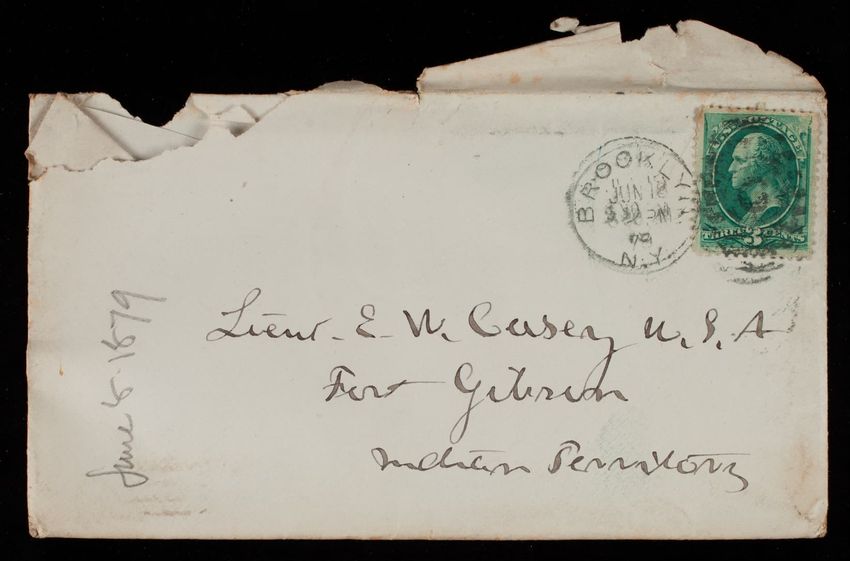 U.S. POSTAGE
THREE 3 CENTS
BROOKLYN
JUN 12
PM
79
N.Y.
Lieut. E. W. Casey U. S. A
Fort Gibson
Indian Territory
June 8-1879